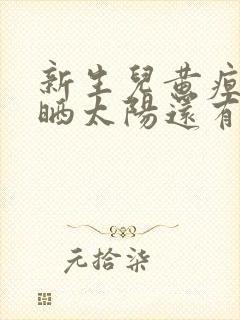 新生兒黃疸
曬太陽還有
元拾柒